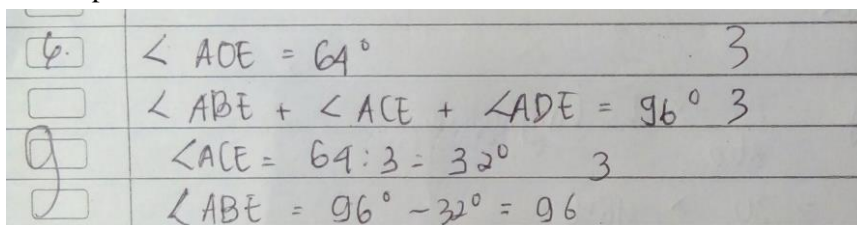 6. ∠ AOE = 64° 3
∠ ABE + ∠ ACE + ∠ADE = 96° 3
9 ∠ACE = 64 : 3 = 32° 3
∠ ABE = 96° - 32° = 96